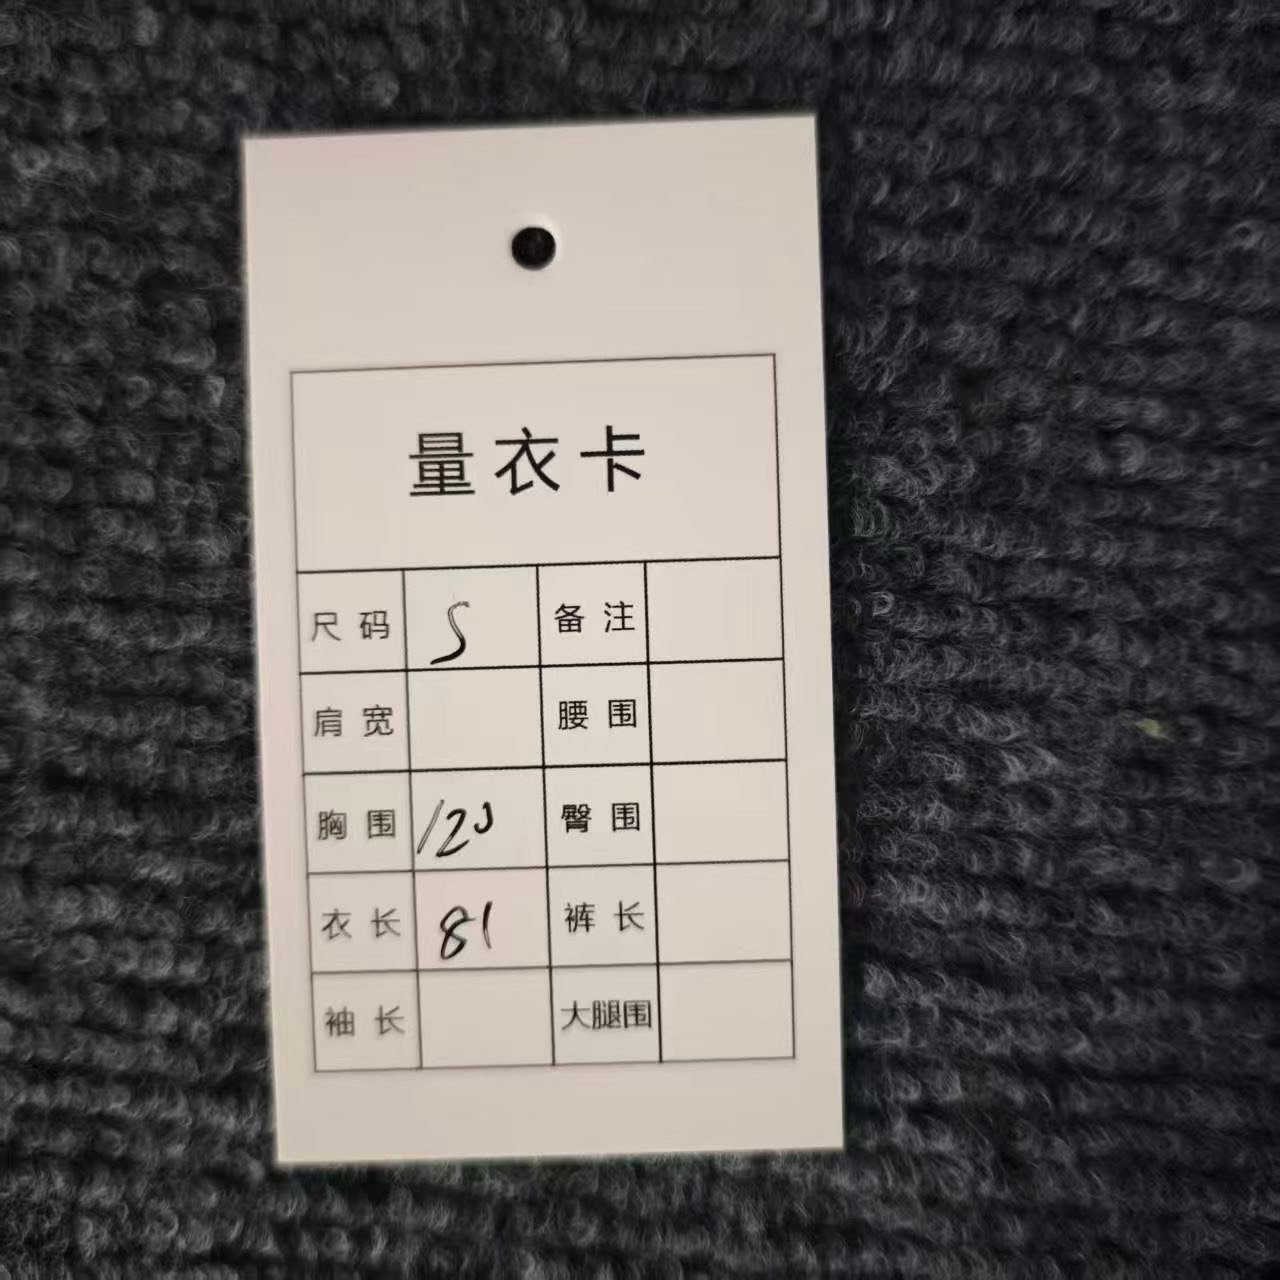 量衣卡
尺码 S 备注
肩宽 腰围
胸围 120 臀围
衣长 81 裤长
袖长 大腿围